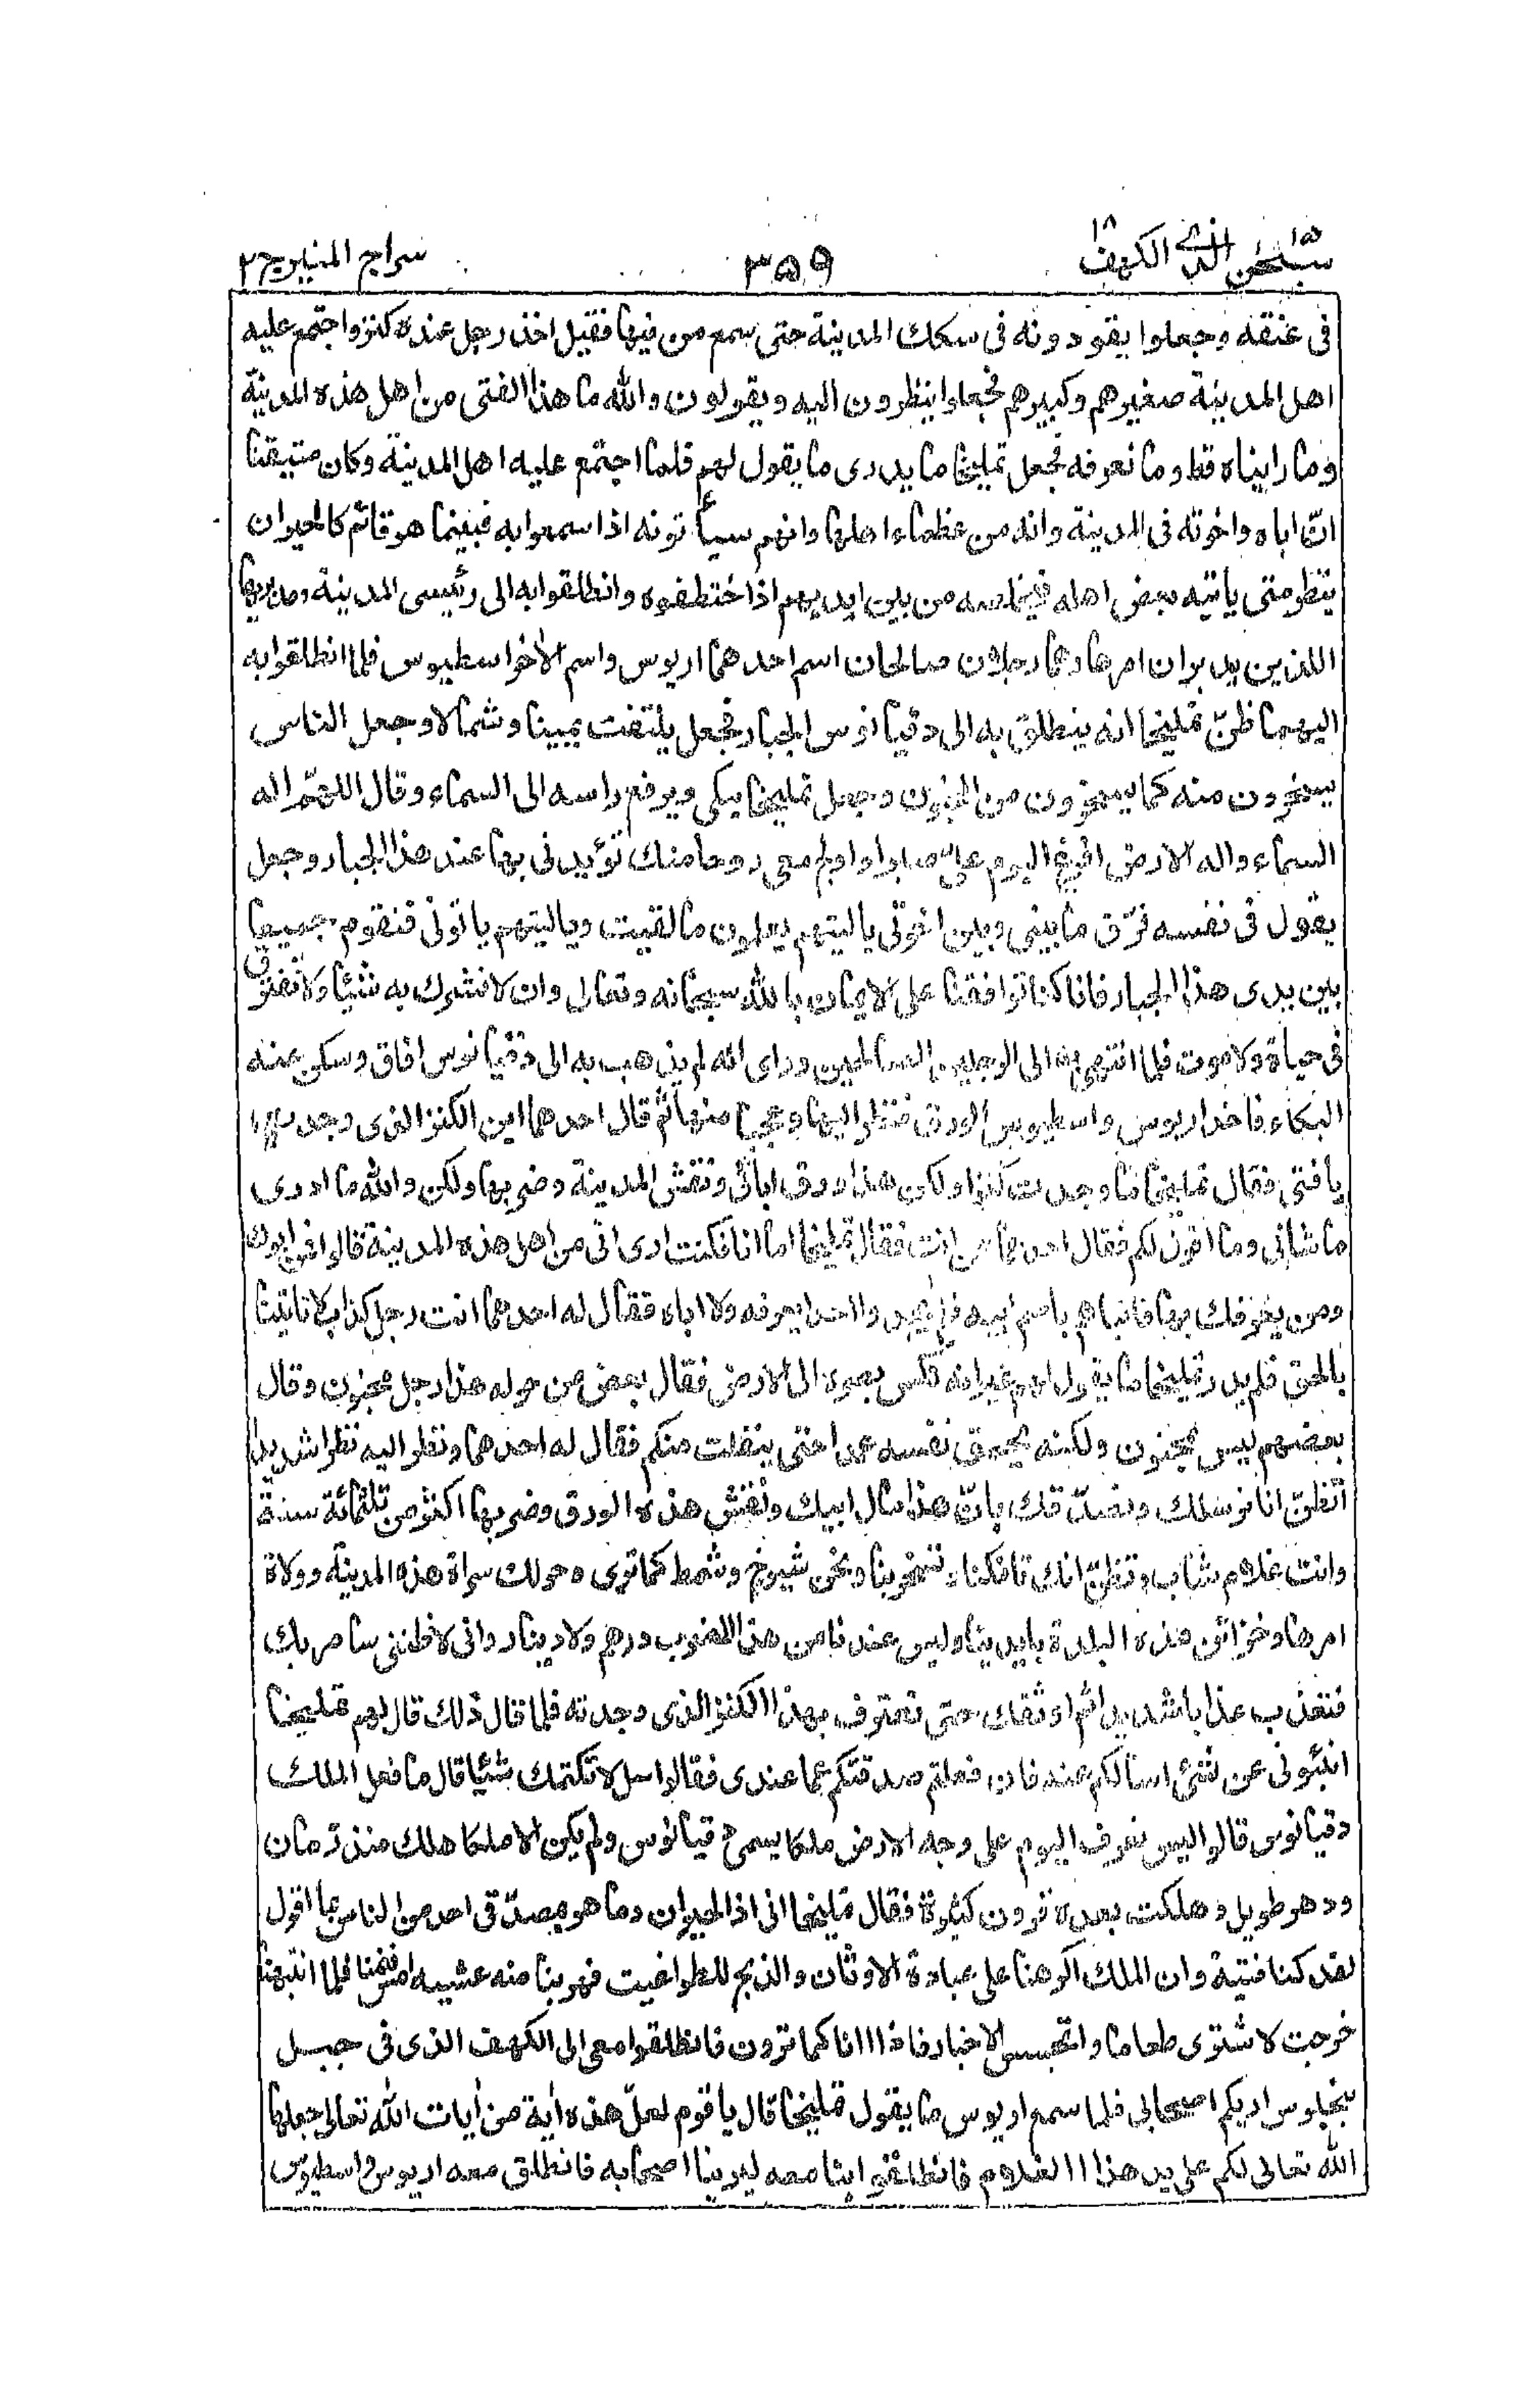 سبحن الذى ١٥ الكهف ١٨
٣٥٩
سراج المنير ج ٢
فى عنقه وجعلوا يقودونه فى سكك المدينة حتى سمع من فيها فقيل اخذ رجل عنده كنز واجتمع عليه
اهل المدينة صغيرهم وكبيرهم فجعلوا ينظرون اليه ويقولون والله ما هذا الفتى من اهل هذه المدينة
وما رايناه قط وما نعرفه فجعل تمليخا ما يدرى ما يقول لهم فلما اجتمع عليه اهل المدينة وكان متيقنا
انّ اباه واخوته فى المدينة وانه من عظماء اهلها وانهم سيأتونه اذا سمعوا به فبينما هو قائم كالحيران
ينتظر متى ياتيه بعض اهله فيخلصه من بين ايديهم اذا ختطفوه وانطلقوا به الى رئيسى المدينة ومدبريها
اللذين يدبران امرها وهما رجلان صالحان اسم احدهما اريوس واسم الأخر اسطيوس فلما انطلقوا به
اليهما ظنّ تمليخا انه ينطلق به الى دقيانوس الجبار فجعل يلتفت يمينا وشمالا وجعل الناس
يسخرون منه كما يسخرون من المجنون وجعل تمليخا يبكى ويرفع راسه الى السماء وقال اللهمّ اله
السماء واله الارض افرغ اليوم علىّ صبرا واولج معى روحا منك تؤيدنى بها عند هذا الجبار وجعل
يقول فى نفسه فرّق ما بينى وبين اخوتى ياليتهم يعلمون ما لقيت وياليتهم ياتونى فنقوم جميعا
بين يدى هذا الجبار فانا كنا توافقنا على الايمان بالله سبحانه وتعالى وان لا نشرك به شيئا ولا نفترق
فى حياة ولا موت فلما انتهى به الى الرجلين الصالحين وراى انه لم يذهب به الى دقيانوس افاق وسكن عنه
البكاء فاخذ اريوس واسطيوس الورق فنظرا اليها وعجبا منها ثم قال احدهما اين الكنز الذى وجدت
يا فتى فقال تمليخا ما وجدت كنزا ولكن هذا ورق ابائى ونقش المدينة وضربها ولكن والله ما ادرى
ما شانى وما اقول لكم فقال احدهما من انت فقال تمليخا اما انا فكنت ارى انى من اهل هذه المدينة قالوا فمن ابوك
ومن يعرفك بها فانباهم باسم ابيه فلم يجدوا احدا يعرفه ولا اباه فقال له احدهما انت رجل كذاب لا تاتينا
بالحق فلم يدر تمليخا ما يقول لهم غير انه نكس بصره الى الارض فقال بعض من حوله هذا رجل مجنون وقال
بعضهم ليس بمجنون ولكنه يحمق نفسه عمدا حتى ينفلت منكم فقال له احدهما ونظر اليه نظرا شديدا
اتظنّ انا نرسلك ونصدّقك بانّ هذا مال ابيك ونقش هذه الورق وضربها اكثر من ثلثمائة سنة
وانت غلام شاب وتظنّ انك تافكنا وتسخر بنا ونحن شيوخ وشمط كما ترى وحولك سراة هذه المدينة وولاة
امرها وخزائن هذه البلدة بايدينا وليس عندنا من هذا الضرب درهم ولا دينار وانى لاظننى سامر بك
فتعذب عذابا شديدا ثم اوثقك حتى تعترف بهذا الكنز الذى وجدته فلما قال ذلك قال لهم تمليخا
انبؤنى عن شئ اسألكم عنه فان فعلتم صدقتكم عما عندى فقالوا سل لا نكتمك شيئا قال ما فعل الملك
دقيانوس قالوا ليس نعرف اليوم على وجه الارض ملكا يسمى دقيانوس ولم يكن الا ملكا هلك منذ زمان
ودهر طويل وهلكت بعده قرون كثيرة فقال تمليخا انى اذا لحيران وما هو بمصدّقى احد من الناس بما اقول
لقد كنا فتية وان الملك اكرهنا على عبادة الاوثان والذبح للطواغيت فهربنا منه عشيه امس فنمنا فلما انتبهنا
خرجت لاشترى طعاما واتجسس الاخبار فاذا انا كما ترون فانطلقوا معى الى الكهف الذى فى جبل
بنجلوس اريكم اصحابى فلما سمع اريوس ما يقول تمليخا قال يا قوم لعلّ هذه أية من أيات الله تعالى جعلها
الله تعالى لكم على يد هذا الغلام فانطلقوا بنا معه ليرينا اصحابه فانطلق معه اريوس واسطيوس